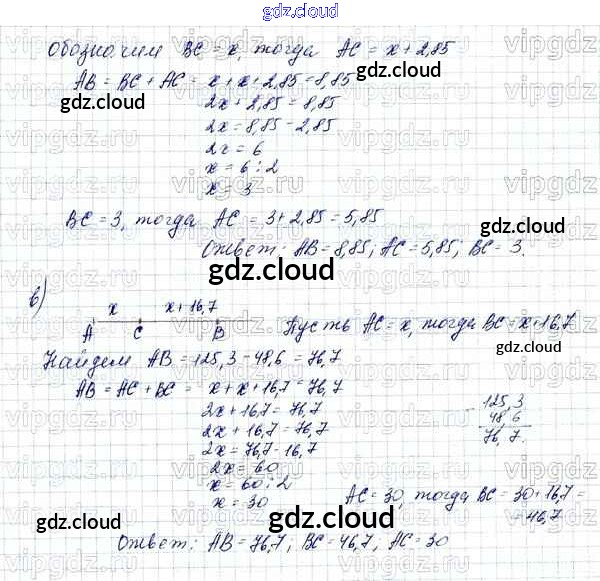 gdz.cloud
Обозначим BC = x, тогда AC = x + 2,85
AB = BC + AC = x + x + 2,85 = 8,85
2x + 2,85 = 8,85
2x = 8,85 - 2,85
2x = 6
x = 6 : 2
x = 3
BC = 3, тогда AC = 3 + 2,85 = 5,85
Ответ: AB = 8,85; AC = 5,85; BC = 3.
в)
x x + 16,7
A C B
Пусть AC = x, тогда BC = x + 16,7
Найдем AB = 125,3 - 48,6 = 76,7
AB = AC + BC = x + x + 16,7 = 76,7
2x + 16,7 = 76,7
2x + 16,7 = 76,7
2x = 76,7 - 16,7
2x = 60
x = 60 : 2
x = 30
- 125,3
48,6
76,7.
AC = 30, тогда BC = 30 + 16,7 =
= 46,7
Ответ: AB = 76,7; BC = 46,7; AC = 30
gdz.cloud
gdz.cloud
gdz.cloud
gdz.cloud
gdz.cloud
gdz.cloud
gdz.cloud
gdz.cloud
gdz.cloud